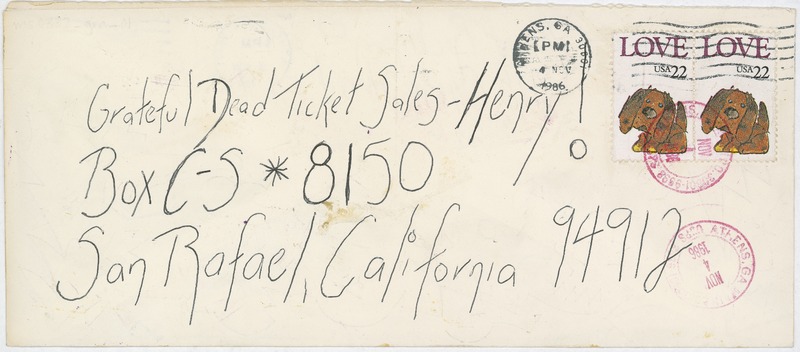 Grateful Dead Ticket Sales - Henry!
Box C-S * 8150
San Rafael, California 94912
ATHENS, GA
PM
4 NOV
1986
LOVE
USA 22
LOVE
USA 22
NOV
ATHENS, GA
NOV
4
1986